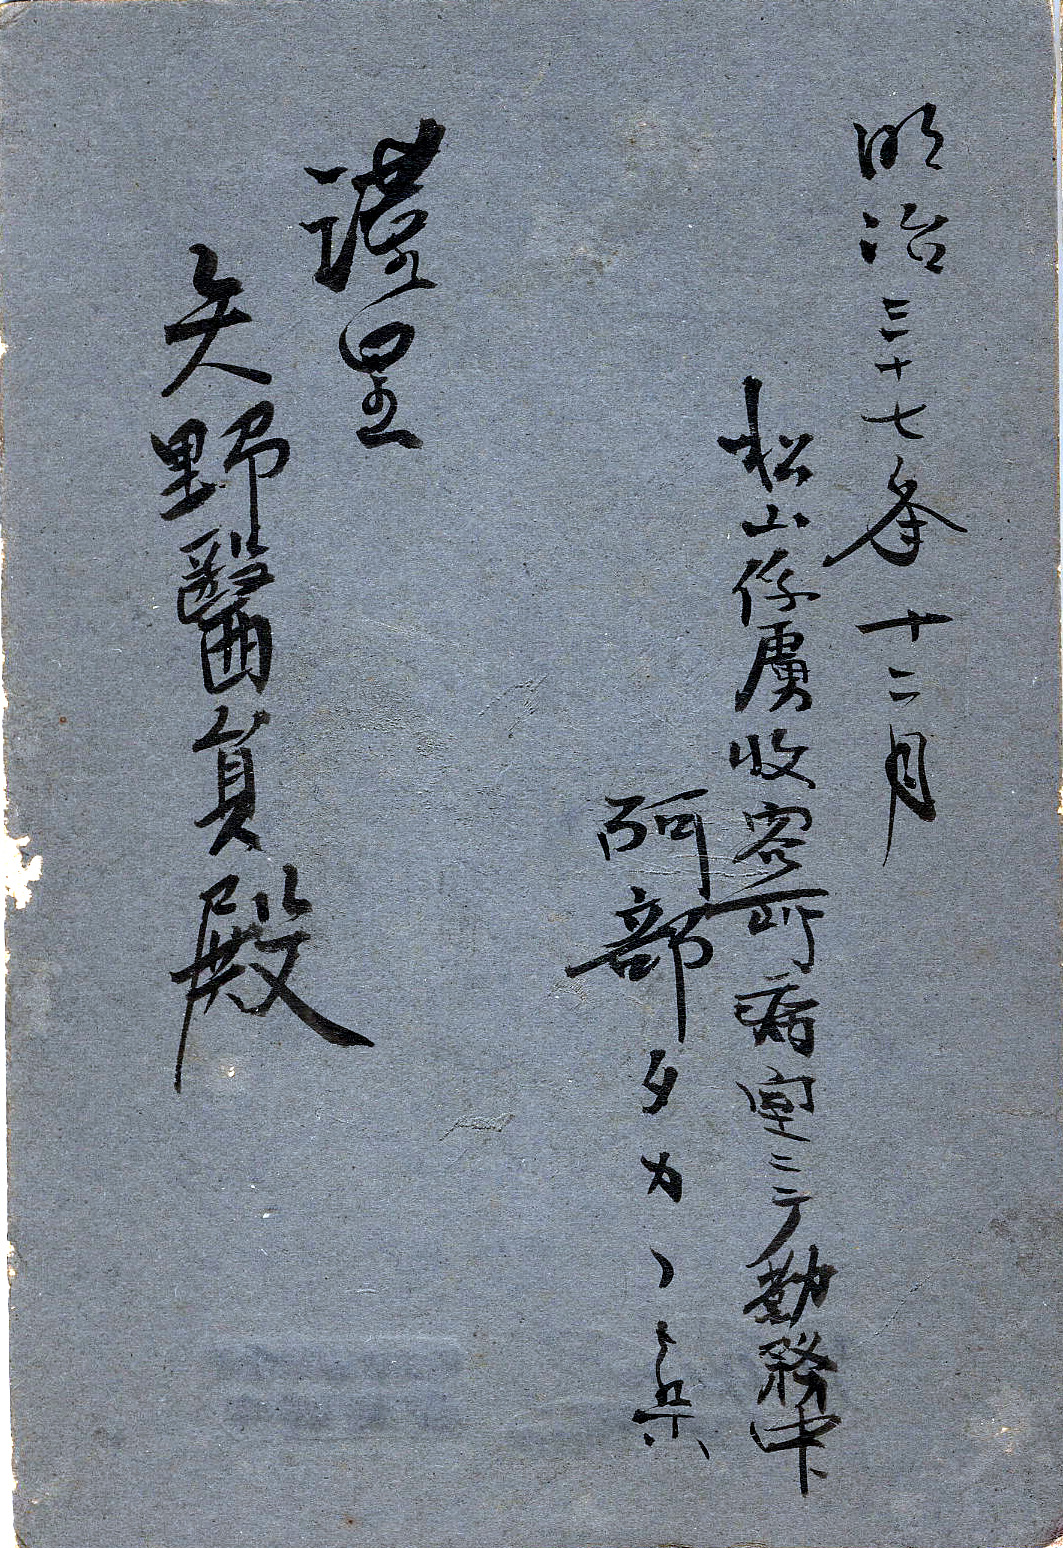 明治三十七年十二月
松山俘虜收容所病室ニテ勤務中
阿部タカ
謹呈
矢野醫員殿